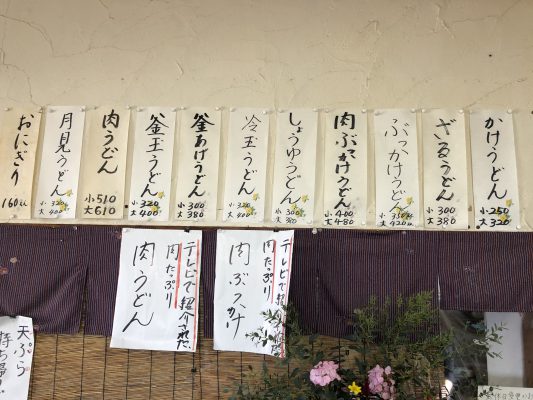 かけうどん
小 250
大 320
ざるうどん
小 300
大 380
ぶっかけうどん
小 350
大 420
肉ぶっかけうどん
小 400
大 480
しょうゆうどん
小 300
大 380
冷玉うどん
小 320
大 400
釜あげうどん
小 300
大 380
釜玉うどん
小 320
大 400
肉うどん
小 510
大 610
月見うどん
小 320
大 400
おにぎり
160
テレビで紹介
肉たっぷり
肉ぶっかけ
テレビで紹介された
肉たっぷり
肉うどん
天ぷら
持ち帰り